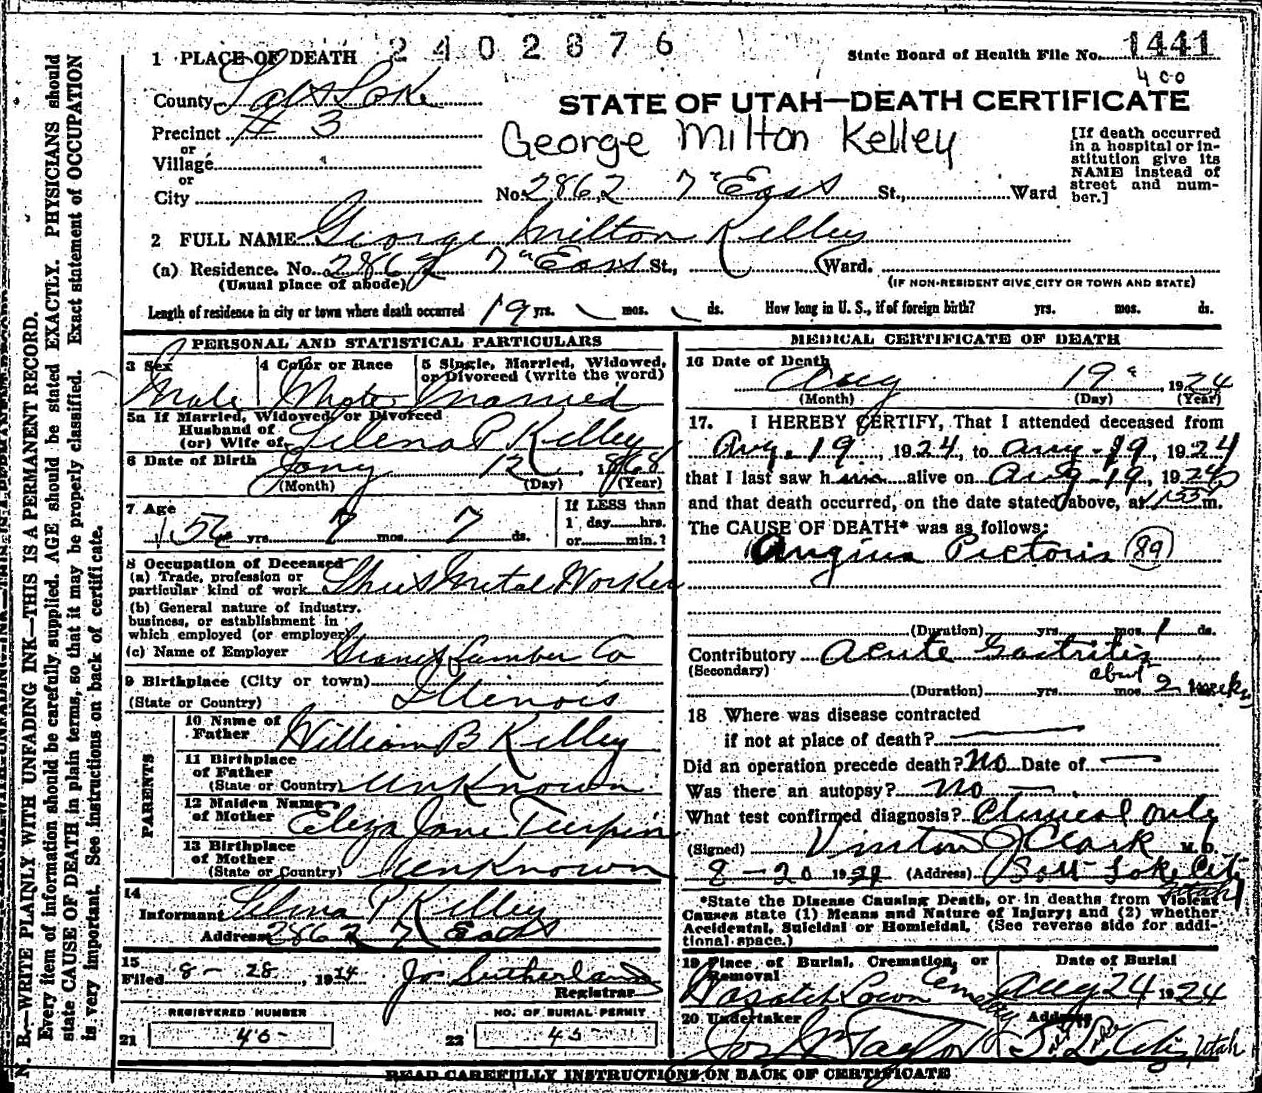 2402876
1 PLACE OF DEATH
State Board of Health File No. 1441
400
County Salt Lake
STATE OF UTAH—DEATH CERTIFICATE
Precinct # 3
or
Village
or
City
George Milton Kelley
[If death occurred in a hospital or institution give its NAME instead of street and number.]
No. 2862 7th East St., Ward
2 FULL NAME George Milton Kelley
(a) Residence. No. 2862 7th East St., Ward.
(Usual place of abode)
(IF NON-RESIDENT GIVE CITY OR TOWN AND STATE)
Length of residence in city or town where death occurred 19 yrs. mos. ds. How long in U. S., if of foreign birth? yrs. mos. ds.
PERSONAL AND STATISTICAL PARTICULARS
3 Sex
Male
4 Color or Race
White
5 Single, Married, Widowed, or Divorced (write the word)
Married
5a If Married, Widowed, or Divorced
Husband of
(or) Wife of Selena P Kelley
6 Date of Birth Jany 12, 1868
(Month) (Day) (Year)
7 Age
56 yrs. 7 mos. 7 ds.
If LESS than
1 day hrs.
or min.?
8 Occupation of Deceased
(a) Trade, profession or
particular kind of work Sheet Metal Worker
(b) General nature of industry,
business, or establishment in
which employed (or employer)
(c) Name of Employer Lumber Co
9 Birthplace (City or town)
(State or Country) Illinois
PARENTS
10 Name of
Father William B Kelley
11 Birthplace
of Father
(State or Country) Unknown
12 Maiden Name
of Mother Eliza Jane Turpin
13 Birthplace
of Mother
(State or Country) Unknown
14
Informant Selena P Kelley
Address 2862 7 East
15
Filed 8-28, 1924 Jos Sutherland
Registrar
REGISTERED NUMBER
21 45
NO. OF BURIAL PERMIT
22 45
MEDICAL CERTIFICATE OF DEATH
16 Date of Death
Aug 19, 1924
(Month) (Day) (Year)
17. I HEREBY CERTIFY, That I attended deceased from
Aug. 19, 1924, to Aug-19, 1924
that I last saw him alive on Aug-19, 1924
and that death occurred, on the date stated above, at m.
The CAUSE OF DEATH* was as follows:
Angina Pectoris (89)
(Duration) yrs. mos. 1 ds.
Contributory Acute Gastritis
(Secondary)
(Duration) yrs. mos. about 2 weeks
18 Where was disease contracted
if not at place of death?
Did an operation precede death? No Date of
Was there an autopsy? No
What test confirmed diagnosis? Clinical only
(Signed) Vinton J Clark M. D.
8-20 1924 (Address) Salt Lake City Utah
*State the Disease Causing Death, or in deaths from Violent
Causes state (1) Means and Nature of Injury; and (2) whether
Accidental, Suicidal or Homicidal. (See reverse side for additional space.)
19 Place of Burial, Cremation, or
Removal
Wasatch Lawn Cemetery
Date of Burial
Aug 24 1924
20 Undertaker
Jos Wm Taylor
Address
Salt Lake City, Utah
READ CAREFULLY INSTRUCTIONS ON BACK OF CERTIFICATE
N. B.—WRITE PLAINLY WITH UNFADING INK—THIS IS A PERMANENT RECORD.
Every item of information should be carefully supplied. AGE should be stated EXACTLY. PHYSICIANS should
state CAUSE OF DEATH in plain terms, so that it may be properly classified. Exact statement of OCCUPATION
is very important. See instructions on back of certificate.